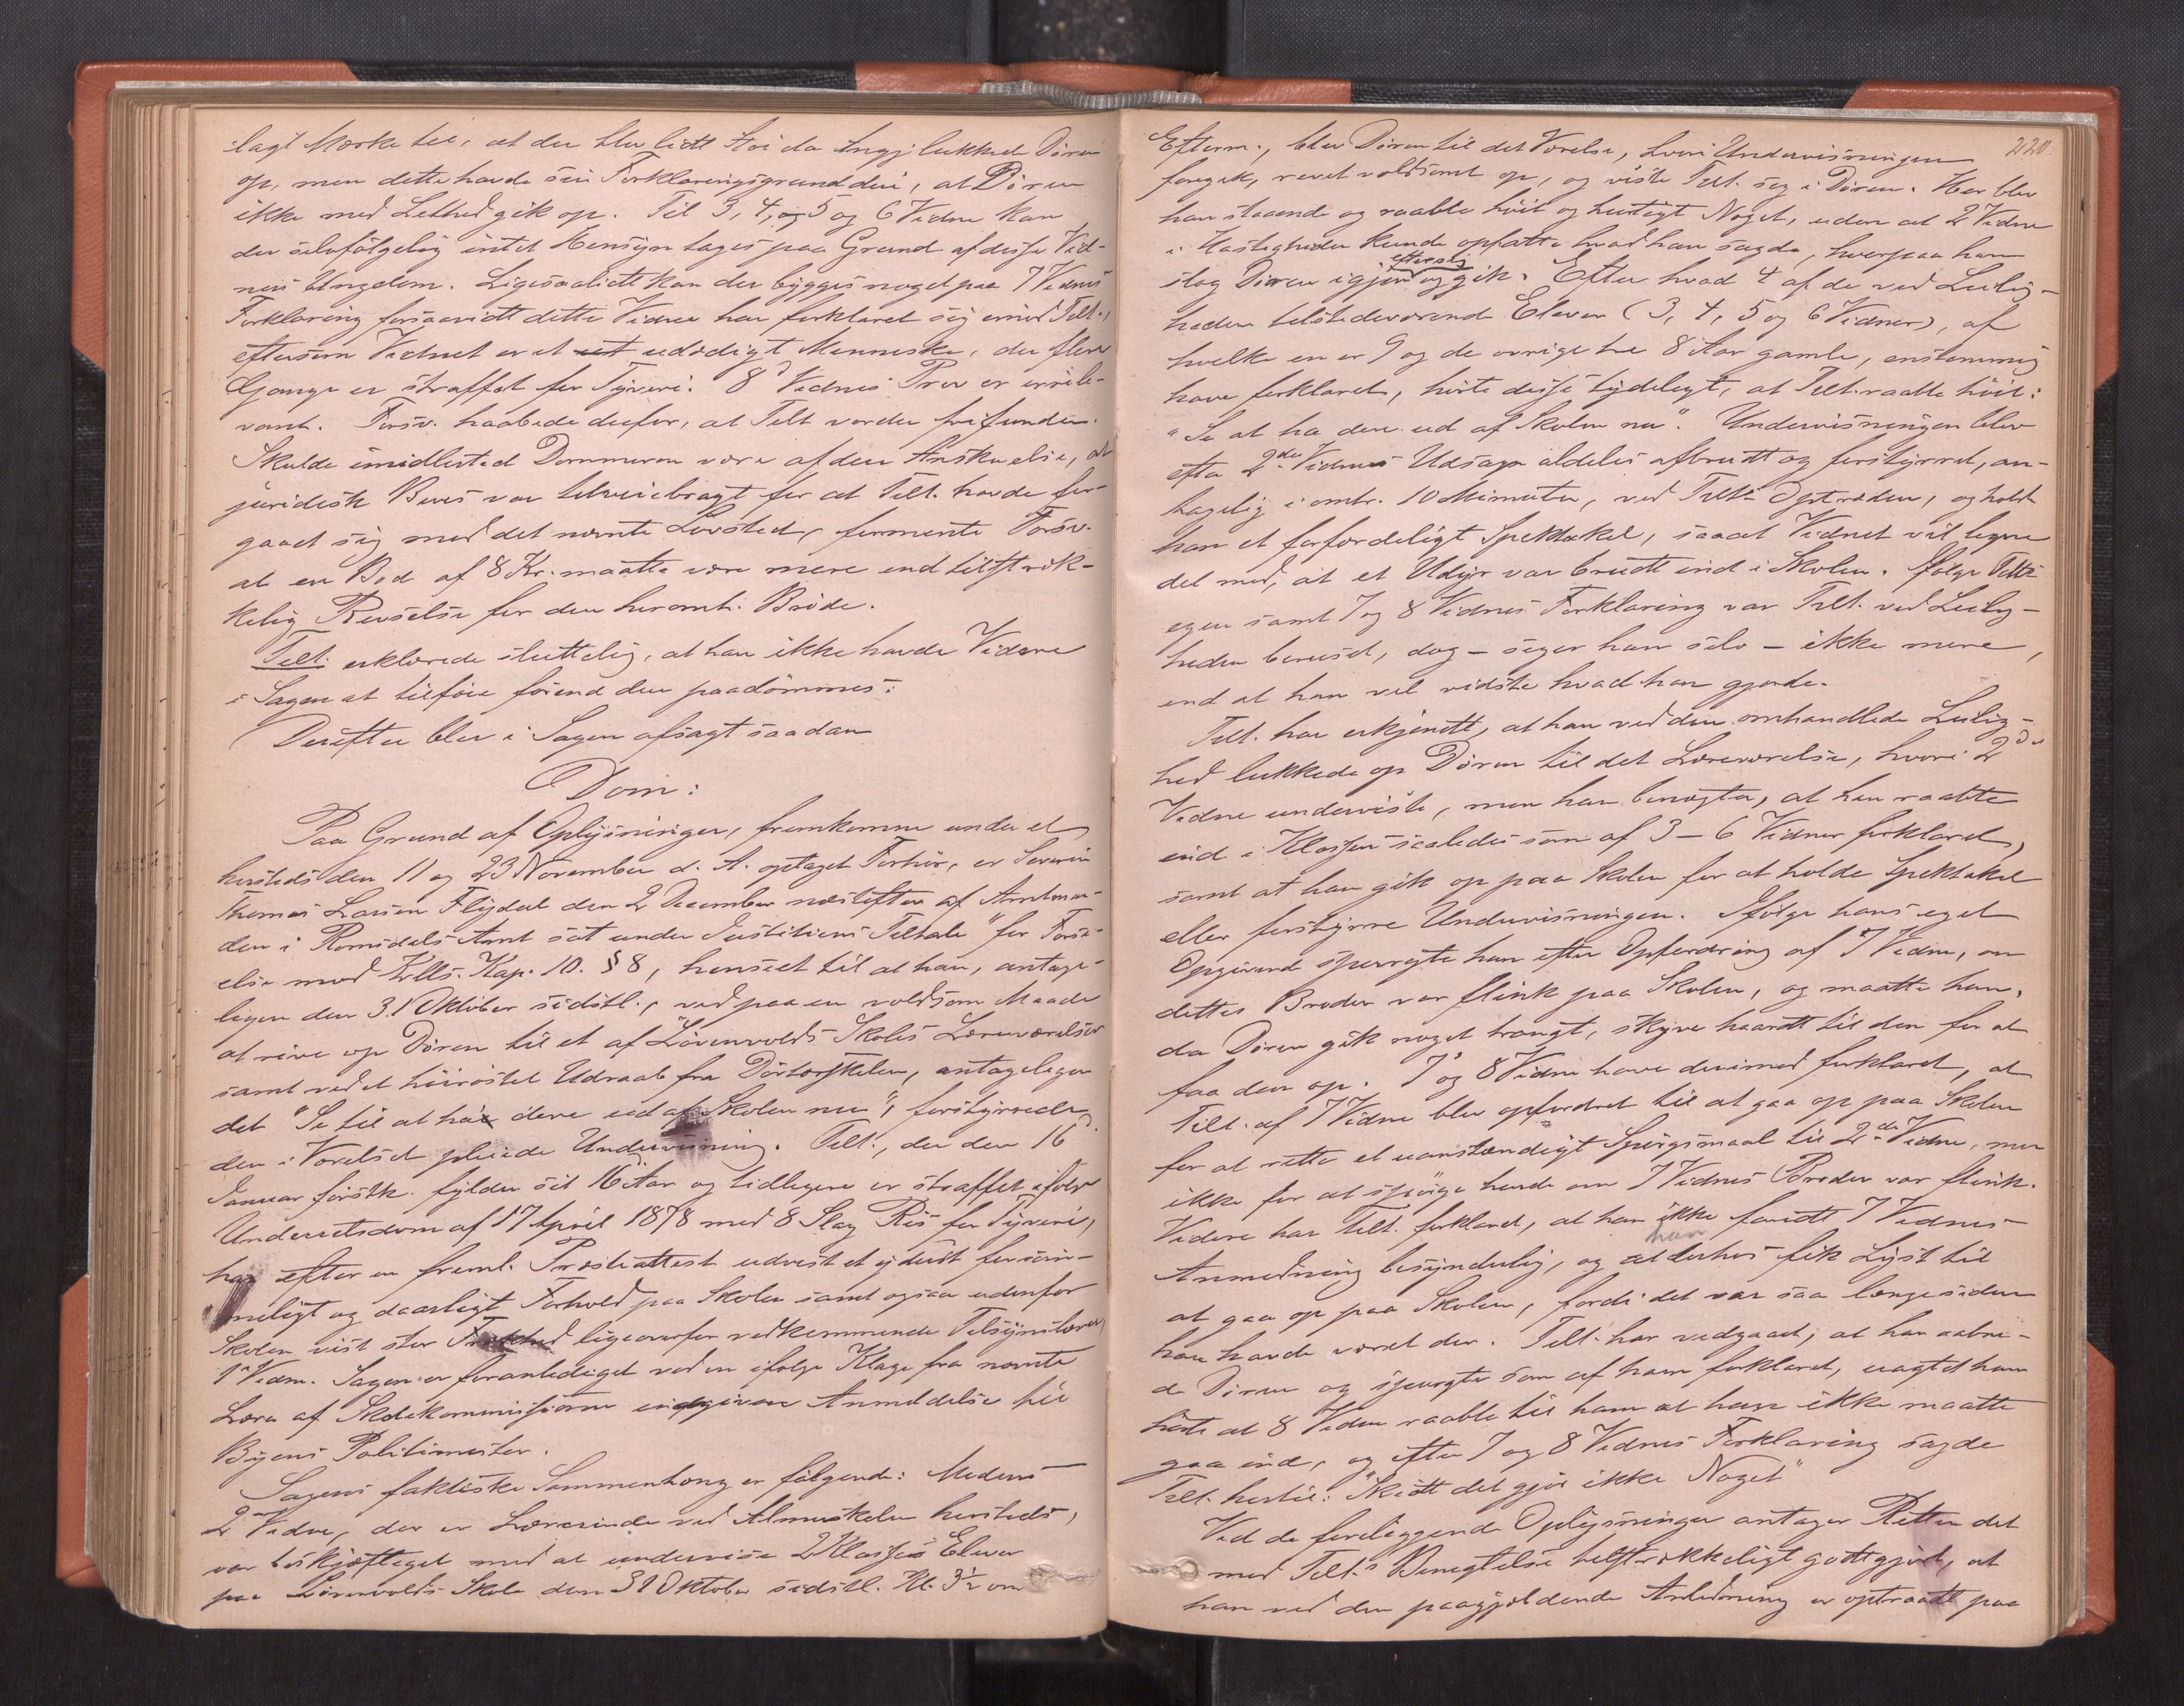 lagt Mærke til, at der blev lidt Støi da Ingj. lukked Døren
op, men dette havde sin Forklaringsgrund deri, at Døren
ikke med Lethed gik op. Til 3, 4, og 5 og 6 Vidne kan
der selvfølgelig intet Hensyn tages paa Grund af disse Vid-
ners Ungdom. Ligesaalidt kan der bygges noget paa 7 Vidnes
Forklaring forsaavidt dette Vidne har forklaret sig imod Tilt.,
eftersom Vidnet er et ud udødigt Menneske, der flere
Gange er straffet for Tyveri. 8d Vidnes Prov er irrele-
vant. Forsv. haabede derfor, at Tilt vorder frifunden.
Skulde imidlertid Dommeren være af den Anskuelse, at
juridisk Bevis var tilveiebragt for at Tilt. havde for-
gaaet sig mod det nævnte Lovsted, formente Forsv.
at en Bod af 8 Kr. maatte være mere end tilstræk-
kelig Revselse for den heromh. Brøde.
Tilt. erklærede sluttelig, at han ikke havde Videre
i Sagen at tilføie førend den paadømmes.
Derefter blev i Sagen afsagt saadan
Dom:
Paa Grund af Oplysninger, fremkomne under et
hersteds den 11 og 23 November d. A. optaget Forhør, er Severin
Thomas Larsen Flydal den 2 December næstefter af Amtman-
den i Romsdals Amt sat under Justitiens Tiltale "for Forse-
else mod Krlls. Kap. 10. § 8, henseet til at han, antage-
ligen den 31 Oktober sidstl., ved paa en voldsom Maade
at rive op Døren til et af Løvenvolds Skoles Læreværelser
samt ved et høirøstet Udraab fra Dørtærskelen, antageligen
det "Se til at ha dere ud af Skolen nu", forstyrrede
den i Værelset pleiede Undervisning. Tilt., der den 16d
Januar førstk. fylder sit 16 Aar og tidligere er straffet ifølge
Underretsdom af 17 April 1878 med 8 Slag Ris for Tyveri,
har efter en freml. Præsteattest udvist et yderst forsøm-
meligt og daarligt Forhold paa Skolen samt ogsaa udenfor
Skolen vist stor Frækhed ligeoverfor vedkommende Tilsynslærer,
1ste Vidne. Sagen er foranlediget ved en ifølge Klage fra nævnte
Lærer af Skolekommissionen indgiven Anmeldelse til
Byens Politimester.
Sagens faktiske Sammenhæng er følgende: Medens
2det Vidne, der er Lærerinde ved Almueskolen hersteds,
var beskjæftiget med at undervise 2 Klasses Elever
paa Løvenvolds Skole den 31 Oktober sidstl. Kl. 3½ om
220.
Efterm., blev Døren til det Værelse, hvori Undervisningen
foregik, revet voldsomt op, og viste Tilt. sig i Døren. Her blev
han staaende og raabte høit og hurtigt Noget, uden at 2 Vidne
i Hastigheden kunde opfatte hvad han sagde, hvorpaa han
slog Døren igjen og gik. Efter hvad 4 af de ved Leilig-
heden tilstedeværende Elever (3, 4, 5 og 6 Vidner), af
hvilke en er 9 og de øvrige tre 8 Aar gamle, enstemmig
have forklaret, hørte disse tydeligt, at Tilt. raabte høit:
"Se at ha dere ud af Skolen nu". Undervisningen blev
efter 2det Vidnes Udsagn aldeles afbrudt og forstyrret, an-
tagelig i omtr. 10 Minuter, ved Tilts Optræden, og holdt
han et forfærdeligt Spektakel, saaat Vidnet vil ligne
det med, at et Udyr var brudt ind i Skolen. Ifølge Tilts
egen samt 7 og 8 Vidnes Forklaring var Tilt. ved Leilig-
heden beruset, dog – siger han selv – ikke mere,
end at han vel vidste hvad han gjorde.
Tilt. har erkjendt, at han ved den omhandlede Leilig-
hed lukkede op Døren til det Læreværelse, hvori 2det
Vidne underviste, men han benægter, at han raabte
ind i Klassen saaledes som af 3–6 Vidner forklaret,
samt at han gik op paa Skolen for at holde Spektakel
eller forstyrre Undervisningen. Ifølge hans eget
Opgivende spurgte han efter Opfordring af 7 Vidne, om
dettes Broder var flink paa Skolen, og maatte han,
da Døren gik noget trangt, skyve haardt til den for at
faa den op. 7 og 8 Vidne have derimod forklaret, at
Tilt. af 7 Vidne blev opfordret til at gaa op paa Skolen
for at rette et uanstændigt Spørgsmaal til 2det Vidne, men
ikke for at spørge hende om 7 Vidnes Broder var flink.
Videre har Tilt. forklaret, at han ikke fandt 7 Vidnes
Anmodning besynderlig, og at han derhos fik Lyst til
at gaa op paa Skolen, fordi det var saa længe siden
han havde været der. Tilt. har vedgaaet, at han aabne-
de Døren og spurgte som af ham forklaret, uagtet han
hørte at 8 Vidne raabte til ham at han ikke maatte
gaa ind, og efter 7 og 8 Vidnes Forklaring sagde
Tilt. hertil: "Skidt det gjør ikke Noget"
Ved de foreliggende Oplysninger antager Retten det
mod Tilt.s Benegtelse tilstrækkeligt godtgjort, at
han ved den paagjældende Anledning er optraadt paa